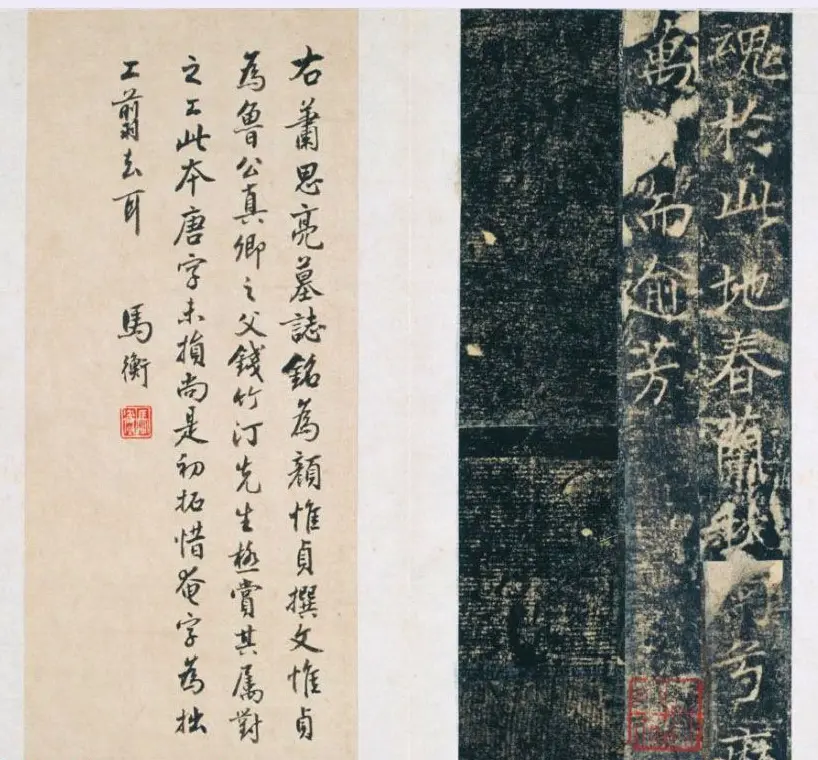 魂於此地春蘭秋兮
萬而逾芳
右蕭思亮墓誌銘為顏惟貞撰文惟貞
為魯公真卿之父錢竹汀先生極賞其屬對
之工此本唐字未損尚是初拓惜奄字為拙
工翦去耳 馬衡